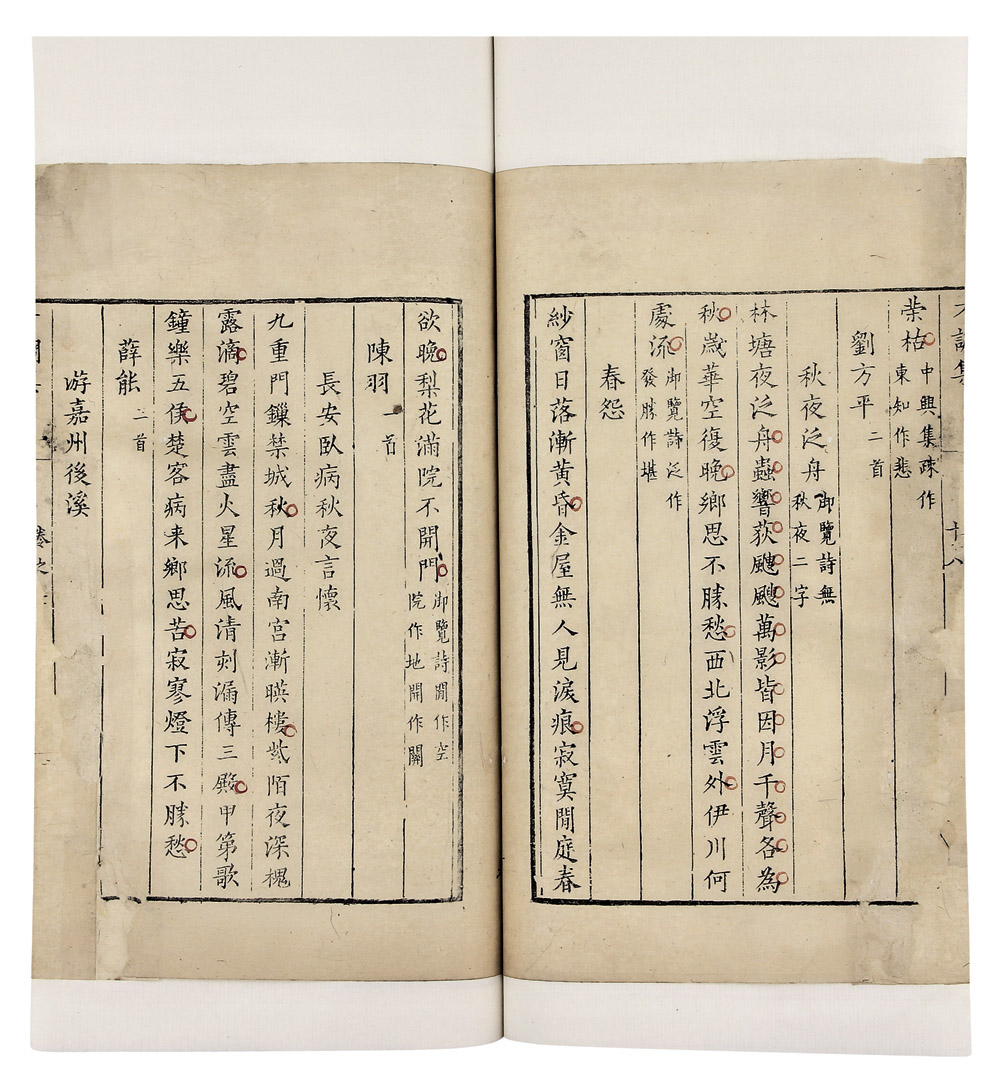 才調集
廿八
榮枯中興集疎作東知作悲
劉方平二首
秋夜泛舟御覽詩無秋夜二字
林塘夜泛舟蟲響荻颼颼萬影皆因月千聲各為
秋歲華空復晚鄉思不勝愁西北浮雲外伊川何
處流御覽詩泛作發勝作堪
春怨
紗窗日落漸黃昏金屋無人見淚痕寂寞閒庭春
欲晚梨花滿院不開門御覽詩閒作空院作地開作關
陳羽一首
長安臥病秋夜言懷
九重門鏁禁城秋月過南宮漸暎樓紫陌夜深槐
露滴碧空雲盡火星流風清刻漏傳三殿甲第歌
鐘樂五侯楚客病来鄉思苦寂寥燈下不勝愁
薛能二首
游嘉州後溪
卷之